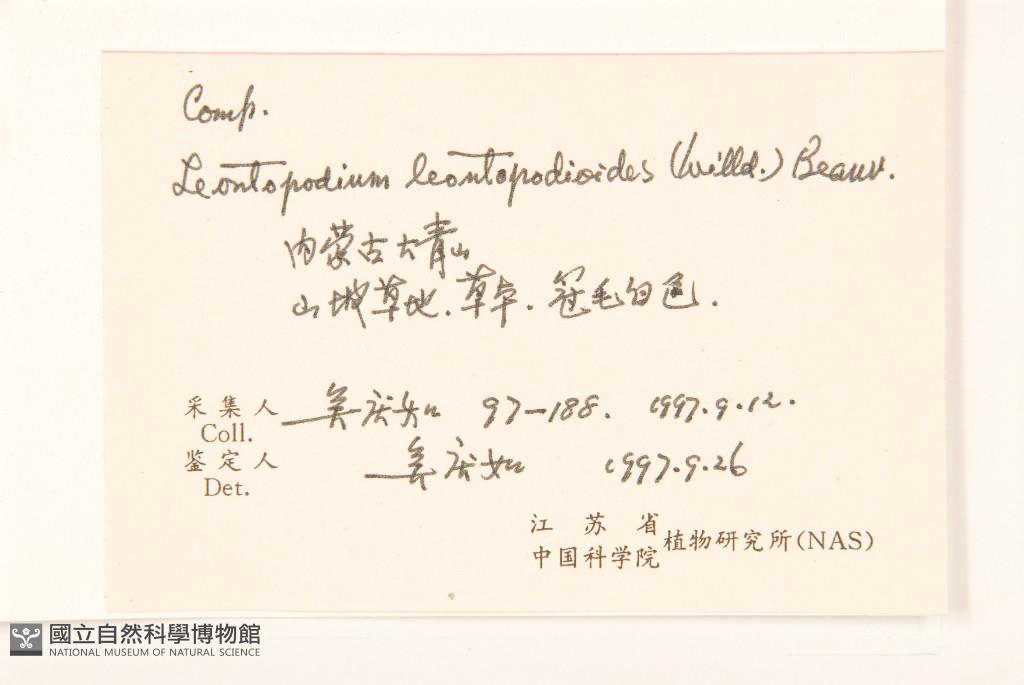 Comp.
Leontopodium leontopodioides (Willd.) Beauv.
内蒙古大青山
山坡草地. 草本. 冠毛白色.
采集人 姜庆如 97-188. 1997.9.12.
Coll.
鉴定人 姜庆如 1997.9.26
Det.
江苏省
中国科学院 植物研究所(NAS)
國立自然科學博物館
NATIONAL MUSEUM OF NATURAL SCIENCE